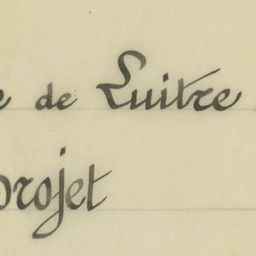 e de Luitre
projet